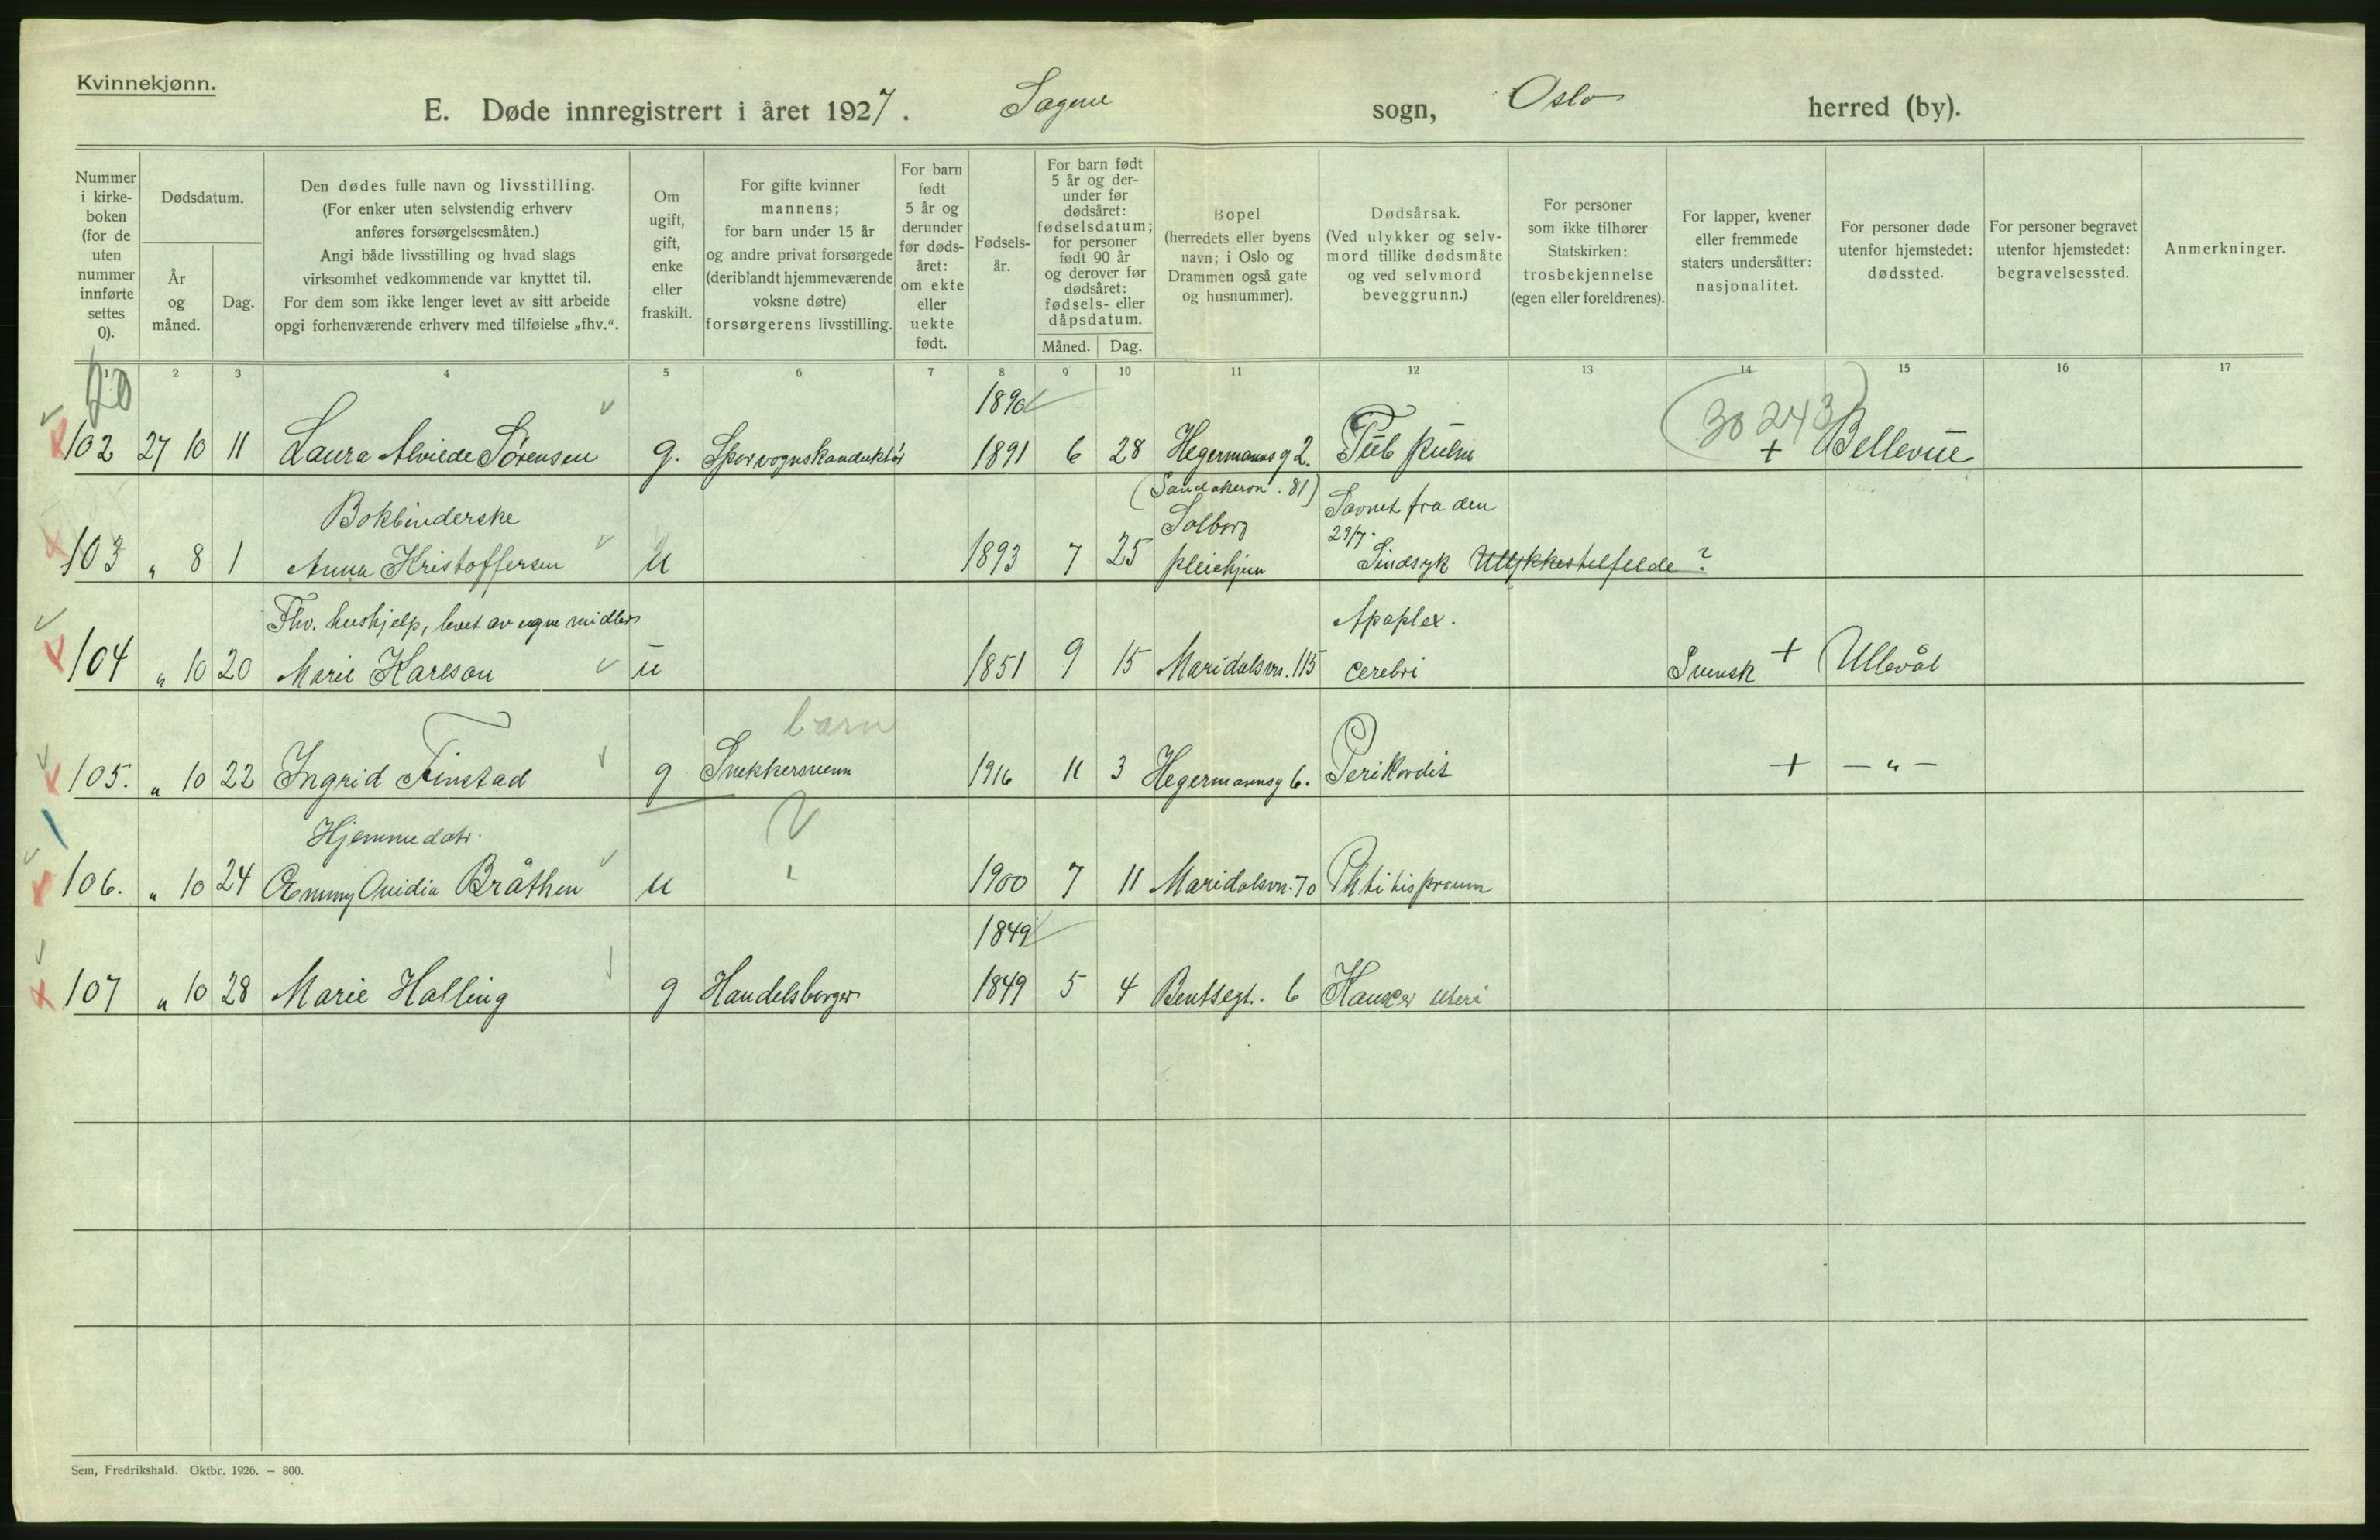 Kvinnekjønn.
E. Døde innregistrert i året 1927. Sagene sogn, Oslo herred (by).
Nummer i kirke-boken (for de uten nummer innførte settes 0).
Dødsdatum.
År og måned.
Dag.
Den dødes fulle navn og livsstilling.
(For enker uten selvstendig erhverv
anføres forsørgelsesmåten.)
Angi både livsstilling og hvad slags
virksomhet vedkommende var knyttet til.
For dem som ikke lenger levet av sitt arbeide
opgi forhenværende erhverv med tilføielse „fhv.“.
Om ugift, gift, enke eller fraskilt.
For gifte kvinner
mannens;
for barn under 15 år
og andre privat forsørgede
(deriblandt hjemmeværende
voksne døtre)
forsørgerens livsstilling.
For barn født 5 år og derunder før døds-året: om ekte eller uekte født.
Fødsels-år.
For barn født
5 år og der-
under før
dødsåret:
fødselsdatum;
for personer
født 90 år
og derover før
dødsåret:
fødsels- eller
dåpsdatum.
Måned. Dag.
Bopel
(herredets eller byens
navn; i Oslo og
Drammen også gate
og husnummer).
Dødsårsak.
(Ved ulykker og selv-
mord tillike dødsmåte
og ved selvmord
beveggrunn.)
For personer
som ikke tilhører
Statskirken:
trosbekjennelse
(egen eller foreldrenes).
For lapper, kvener
eller fremmede
staters undersåtter:
nasjonalitet.
For personer døde
utenfor hjemstedet:
dødssted.
For personer begravet
utenfor hjemstedet:
begravelsessted.
Anmerkninger.
1 2 3 4 5 6 7 8 9 10 11 12 13 14 15 16 17
1890
30 243
102 27 10 11 Laura Alvilde Sørensen g. Sporvognskonduktør 1891 6 28 Hegermanns g 2. Tub pulm + Bellevue
(Sandakervn. 81) Savnet fra den
Bokbinderske Solberg 29/7.
103 „ 8 1 Anna Kristoffersen u 1893 7 25 pleiehjem Sindsyk Ulykkestilfelde ?
Fhv. hushjelp, levet av egne midler Apoplex.
104 „ 10 20 Marie Karlson u 1851 9 15 Maridalsvn. 115 cerebri Svensk + Ullevål
barn
105. „ 10 22 Ingrid Finstad g Snekkersvenn 1916 11 3 Hegermannsg 6. Perikardit + — „ —
Hjemmedatr.
106. „ 10 24 Emmy Ovidia Bråthen u 1900 7 11 Maridalsvn. 70 Phtitis
1849
107 „ 10 28 Marie Halling g Handelsborger 1849 5 4 Bentsegt. 6 Kancer uteri
Sem, Fredrikshald. Oktbr. 1926. — 800.